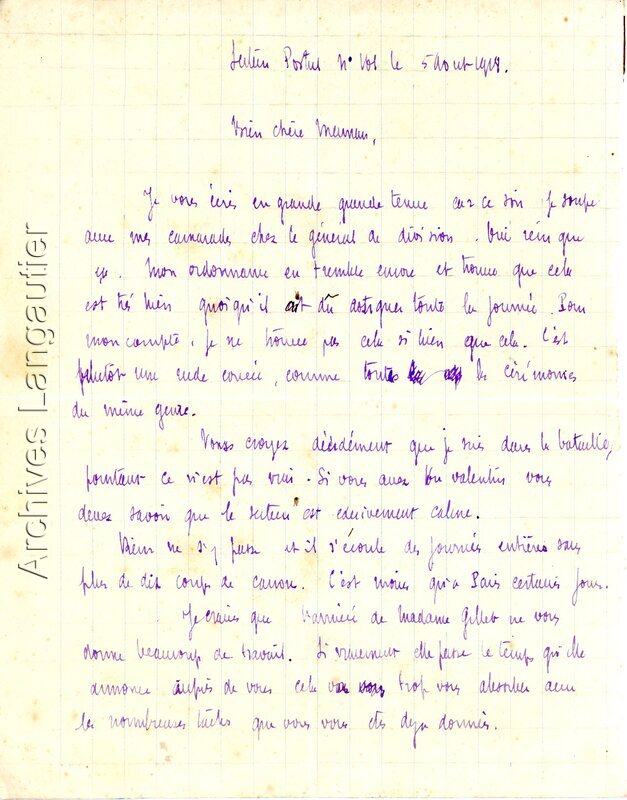 Secteur Postal N° 101 le 5 Aout 1918.
Bien chère Maman,
Je vous écris en grande grande tenue car ce soir je soupe
avec mes camarades chez le général de division. Oui rein que
ça. Mon ordonnance en tremble encore et trouve que cela
est trés bien quoiqu'il ait dû astiquer toute la journée. Pour
mon compte, je ne trouve pas cela si bien que cela. C'est
plutôt une rude corvée, comme toutes les cérémonies
du même genre.
Vous croyez décidément que je suis dans la bataille,
pourtant ce n'est pas vrai. Si vous avez vu valentin vous
devez savoir que le secteur est excessivement calme.
Rien ne s'y passe et il s'écoule des journées entières sans
plus de dix coups de canon. C'est moins qu'a Paris certains jours.
Je crains que l'arrivée de Madame Gillet ne vous
donne beaucoup de travail. Si vraiment elle passe le temps qu'elle
annonce auprès de vous cela va trop vous absorber avec
les nombreuses tâches que vous vous etes deja données.
Archives Langautier